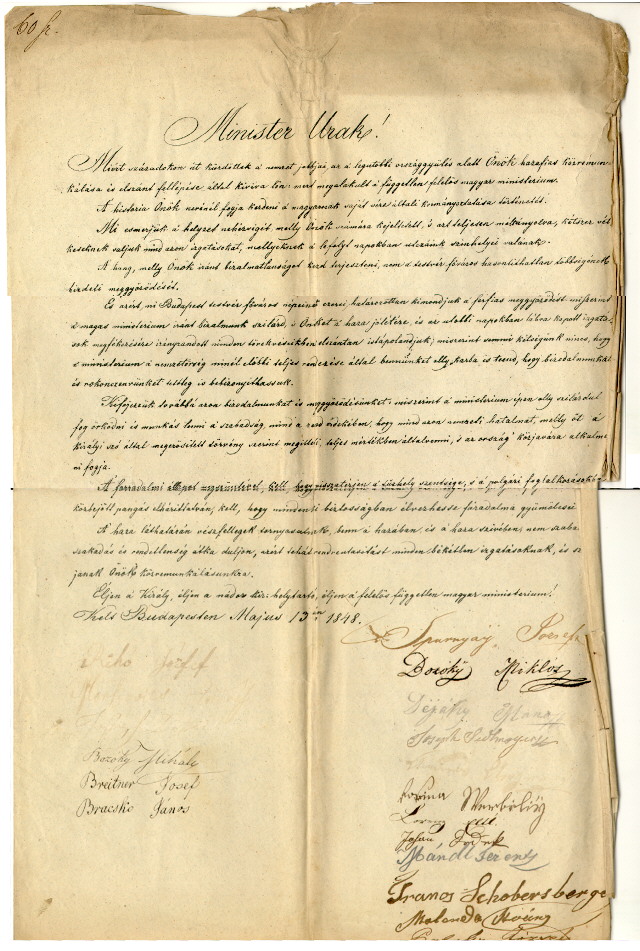 60 fr.
Minister Urak!
Miért századokon át küzdöttek a nemzet jobbjai az a legutobbi országgyülés alatt Önök hazafias közremun
kálása és elszánt fellépése által kivíva lön: mert megalakult a független felelős magyar ministerium.
A historia Önök nevénél fogja kezdeni a magyarnak saját vére általi kormányoztatása történetét.
Mi esmerjük a helyzet nehézségét, melly Önök számára kijeltetett, s azt teljesen méltányolva, kétszer vét
keseknek valljuk mind azon izgatásokat, mellyeknek a lefolyt napokban utczáink szinhelyei valának.
A hang, melly Önök iránt bizalmatlanságot kezd terjeszteni, nem a testvér főváros hasonlithatlan többségének
hirdeti meggyőződését.
És azért, mi Budapest testvér főváros népeinő ezrei határozottan kimondjuk a férfias meggyőződést miszerint
a magas ministerium iránt bizalmunk szilárd, s Önöket a haza jóletére, és az utolbi napokban lábra kapott izgatá
sok megfékezésére irányzandott minden törekvéseikben elszántan istápolandjuk; miszerint semmi kétségünk nincs, hogy
a ministerium a nemzetőrség minél előbbi teljes rendezése által bennünket olly karba is teend, hogy bizodalmunkat
és rokonszenvünket tettleg is bebizonyithassuk.
Kifejezzük továbbá azon bizodalmunkat és meggyőződésünket: miszerint a ministerium épen olly szilárdul
fog örködni és munkás lenni a szabadság, mind a rend érdekében, hogy mind azon nemzeti hatalmat, melly öt a
királyi szó által megerősitett törvény szerint megilleti, teljes mértékben általvenni, s az ország közjavára alkalmaz
ni fogja.
A forradalmi állapot megszüntével, kell, hogy visszatérjen a tűzhely szentsége, s a polgári foglalkozásokba
közbejött pangás elháritatván, kell, hogy mindenki biztosságban élvezhesse forradalma gyümölcsei
A haza láthatárán vészfellegek tornyosulnak, benn a hazában, és a haza szivében, nem szaba
szakadás és rendetlenség átka duljon, azért tehát rendreutasitást minden békétlen izgatásoknak, és sz
janak Önök közremunkálásunkra.
Éljen a Király, éljen a nádor kir: helytartó, éljen a felelős független magyar ministerium!
Kelt Budapesten Majus 13án 1848.
Spurnyay József
Bozóky Miklós
Miho Josef
Joseph Sedlmayer
Bozóky Mihály
Breitner Josef
Bracsko János
Werbőlÿ
Johan
Mándl Ferenz
Franos Schobersberge